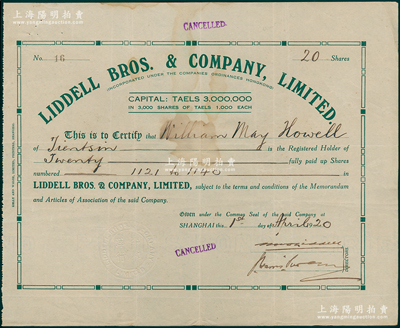 上海陽明拍賣
www.sh-yangming.com
CANCELLED.
No. 16
20 Shares
LIDDELL BROS. & COMPANY, LIMITED.
(INCORPORATED UNDER THE COMPANIES ORDINANCES HONGKONG)
CAPITAL: TAELS 3,000,000
IN 3,000 SHARES OF TAELS 1,000 EACH
This is to Certify that William May Howell
of Tientsin is the Registered Holder of
Twenty fully paid up Shares
numbered 1121 to 1140 in
LIDDELL BROS. & COMPANY, LIMITED, subject to the terms and conditions of the Memorandum
and Articles of Association of the said Company.
Given under the Common Seal of the said Company at
SHANGHAI this 1st day of April 1920
CANCELLED
DIRECTORS.